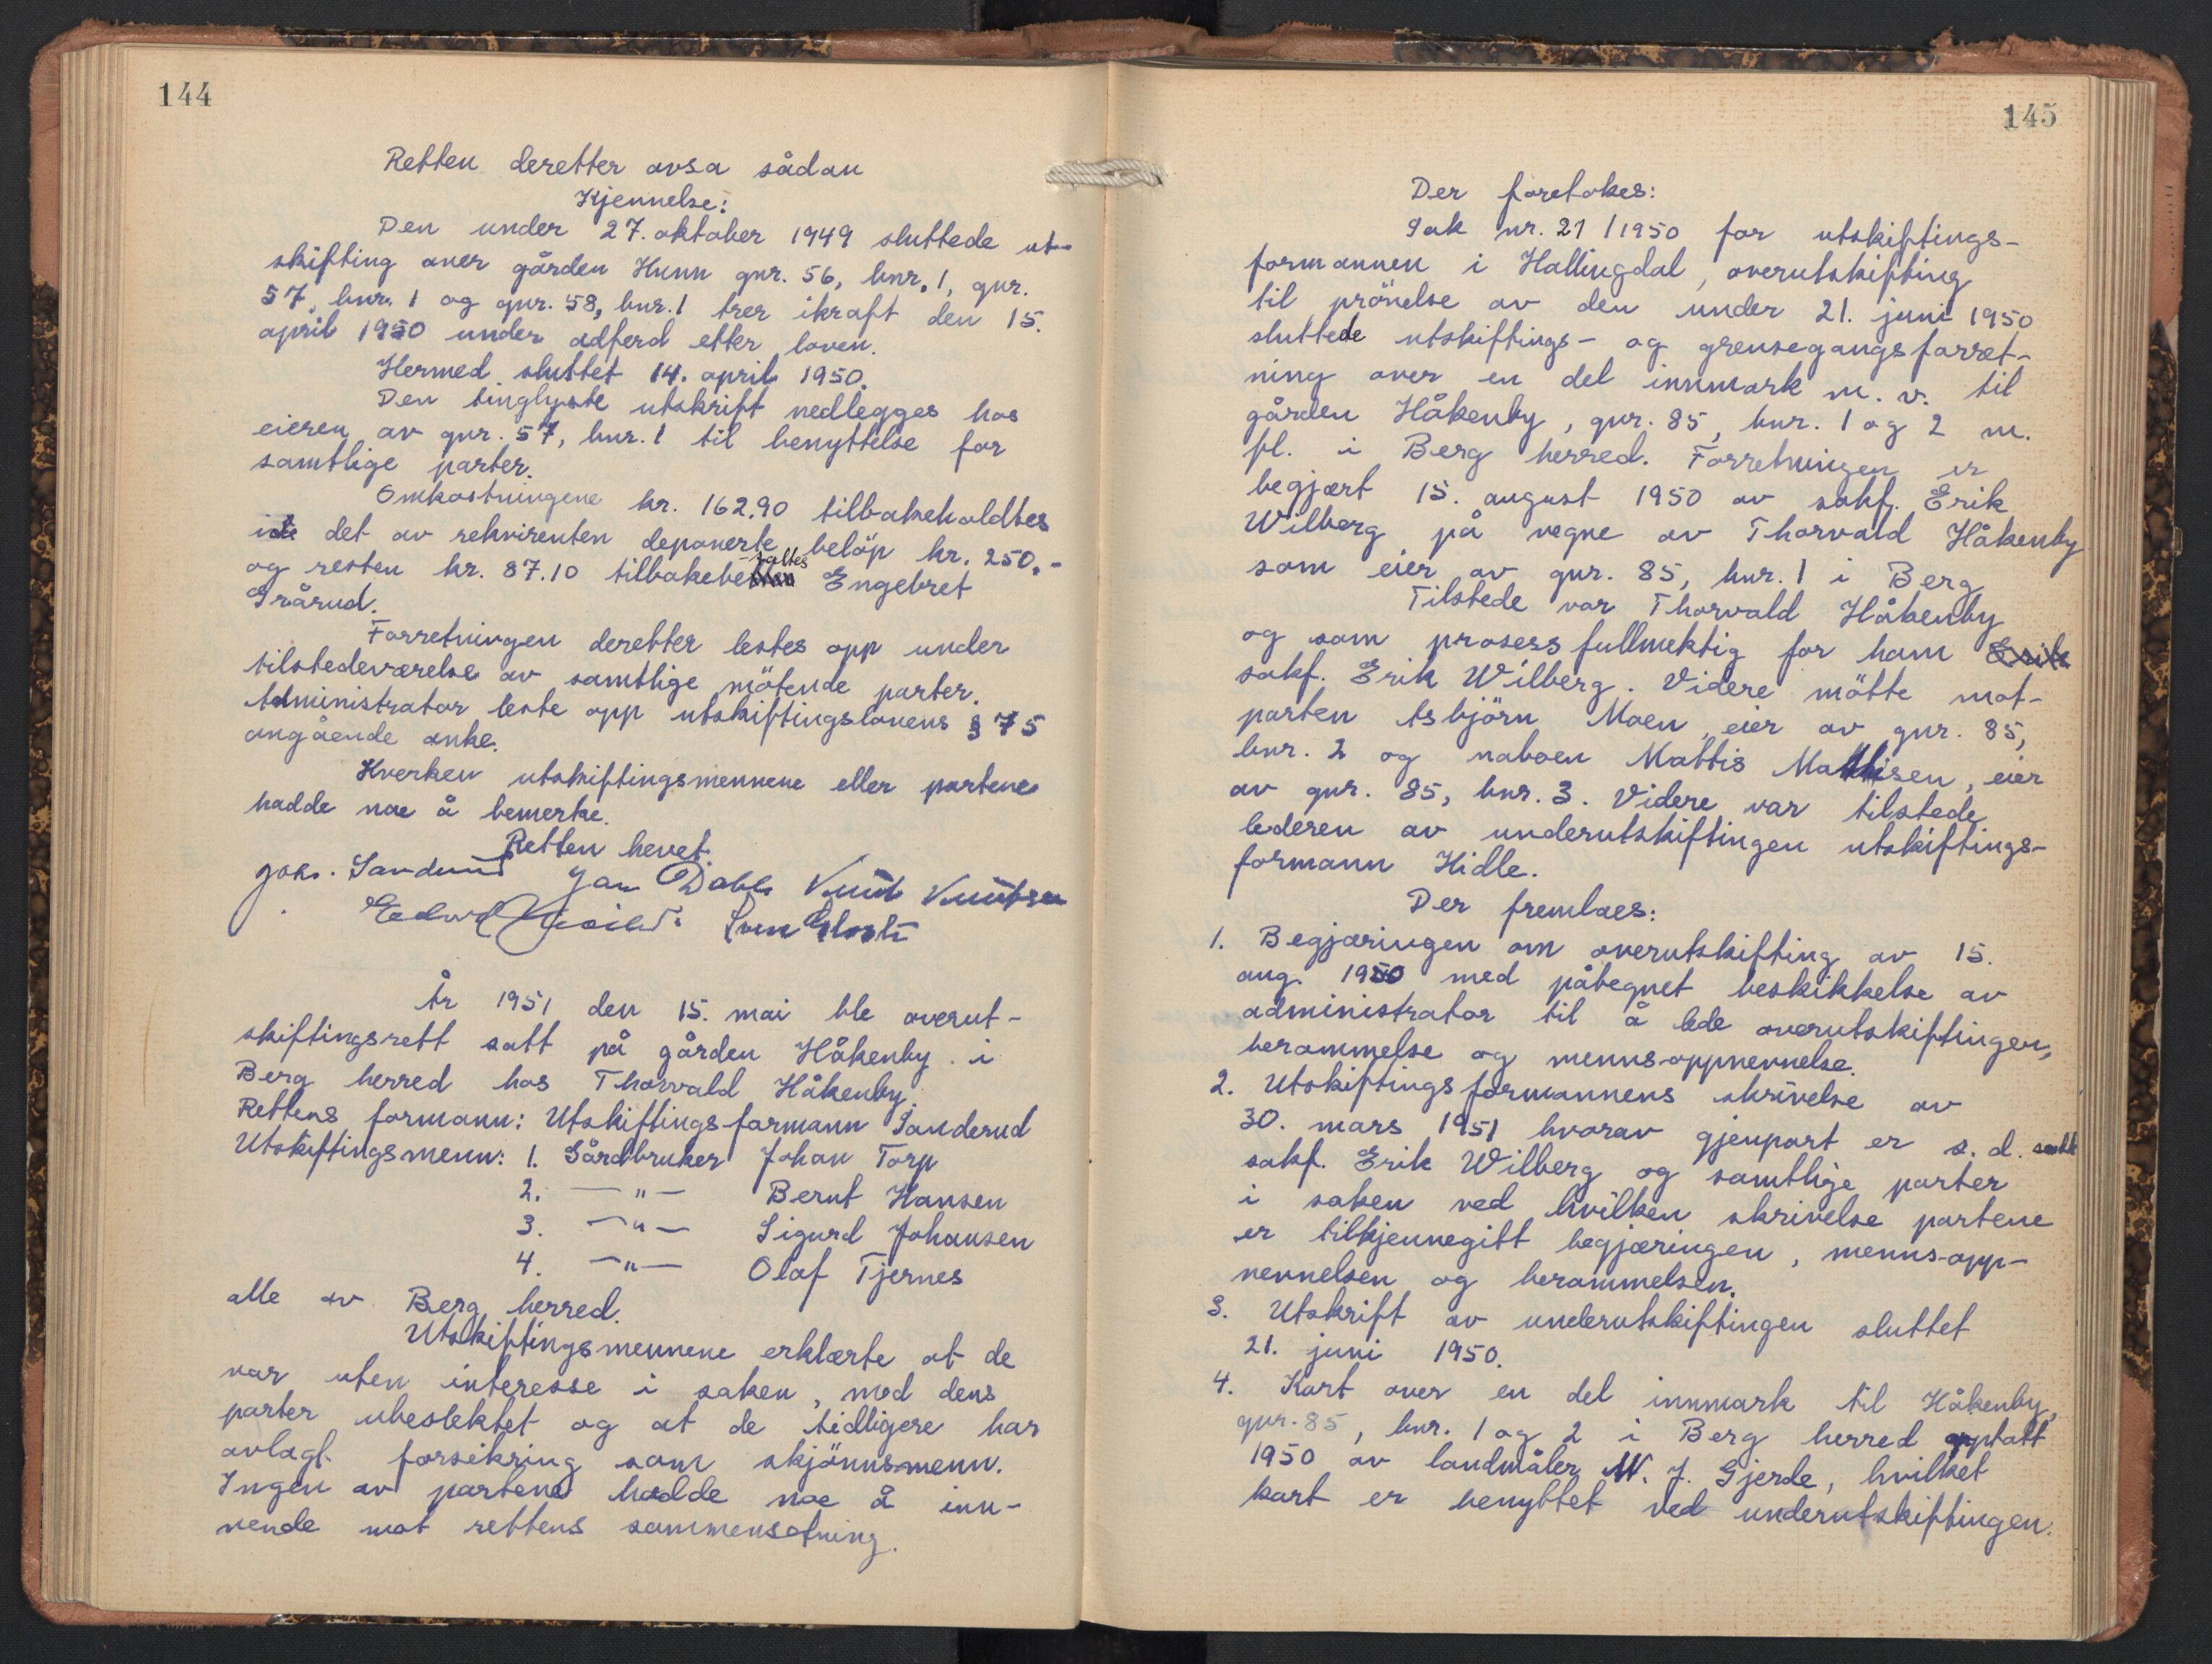 144
Retten deretter avsa sådan
Kjennelse:
Den under 27. oktober 1949 sluttede ut-
skifting over gården Hunn gnr. 56, bnr. 1, gnr.
57, bnr. 1 og gnr. 58, bnr. 1 trer ikraft den 15.
april 1950 under adferd etter loven.
Hermed sluttet 14. april 1950.
Den tinglyste utskrift nedlegges hos
eieren av gnr. 57, bnr. 1 til benyttelse for
samtlige parter.
Omkostningene kr. 162.90 tilbakeholdtes
i det av rekvirenten deponerte beløp kr. 250.-
og resten kr. 87.10 tilbakebetaltes Engebret
Grårud.
Forretningen deretter lestes opp under
tilstedeværelse av samtlige møtende parter.
Administrator leste opp utskiftingslovens § 75
angående anke.
Hverken utskiftingsmennene eller partene
hadde noe å bemerke.
Retten hevet.
Johs. Sanderud Jan Dahl Knut Knutsen
År 1951 den 15. mai ble overut-
skiftingsrett satt på gården Håkenby i
Berg herred hos Thorvald Håkenby.
Rettens formann: Utskiftingsformann Sanderud
Utskiftingsmenn: 1. Gårdbruker Johan Torp
2. — " — Bernt Hansen
3. — " — Sigurd Johansen
4. — " — Olaf Tjernes
alle av Berg herred.
Utskiftingsmennene erklærte at de
var uten interesse i saken, med dens
parter ubeslektet og at de tidligere har
avlagt forsikring som skjønnsmenn.
Ingen av partene hadde noe å inn-
vende mot rettens sammensetning.
145
Der foretokes:
Sak nr. 21/1950 for utskiftings-
formannen i Hallingdal, overutskifting
til prøvelse av den under 21. juni 1950
sluttede utskiftings- og grensegangsforret-
ning over en del innmark m. v. til
gården Håkenby, gnr. 85, bnr. 1 og 2 m.
fl. i Berg herred. Forretningen er
begjært 15. august 1950 av sakf. Erik
Wilberg på vegne av Thorvald Håkenby
som eier av gnr. 85, bnr. 1 i Berg
Tilstede var Thorvald Håkenby
og som prosessfullmektig for ham Erik
sakf. Erik Wilberg. Videre møtte mot-
parten Asbjørn Moen, eier av gnr. 85,
bnr. 2 og naboen Mattis Mathisen, eier
av gnr. 85, bnr. 3. Videre var tilstede
lederen av underutskiftingen utskiftings-
formann Hidle.
Der fremlaes:
1. Begjæringen om overutskifting av 15.
aug. 1950 med påtegnet beskikkelse av
administrator til å lede overutskiftingen,
berammelse og menns-oppnevnelse.
2. Utskiftingsformannens skrivelse av
30. mars 1951 hvorav gjenpart er s. d. sendt
sakf. Erik Wilberg og samtlige parter
i saken ved hvilken skrivelse partene
er tilkjennegitt begjæringen, menns-opp-
nevnelsen og berammelsen.
3. Utskrift av underutskiftingen sluttet
21. juni 1950.
4. Kart over en del innmark til Håkenby,
gnr. 85, bnr. 1 og 2 i Berg herred opptatt
1950 av landmåler N. J. Gjerde, hvilket
kart er benyttet ved underutskiftingen.